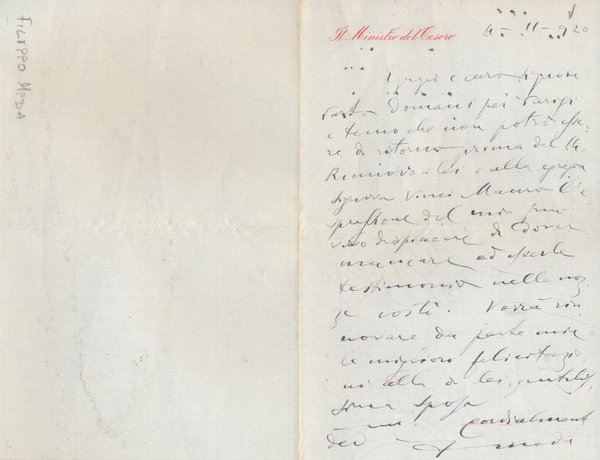 FILIPPO MODA
Il Ministro del Tesoro
4-11-920
Egregio e caro Signore
Parto domani per Parigi
e temo che non potrò esse
re di ritorno prima del 14
Rinnovo a lei e alla egregia
Signora Vinci Mauro l'e
spressione del mio
vivo dispiacere di dover
mancare ad esserle
testimonio nelle noz
ze costì. Vorrà rin
novare da parte mia
le migliori felicitazio
ni alla di lei gentilis
sima sposa
mi cordialment
dev meda